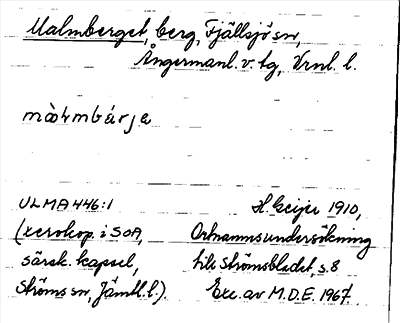 Malmberget, berg, Fjällsjö sn,
Ångermanl. v. tg, Vrnl. l.
màɫmbárja
ULMA 446:1 H. Geijer 1910,
(xerokop. i SOA, Ortnamnsundersökning
särsk. kapsel, till Strömsbladet, s. 8
Ströms sn, Jämtl. l.). Exc. av M.D.E. 1967.